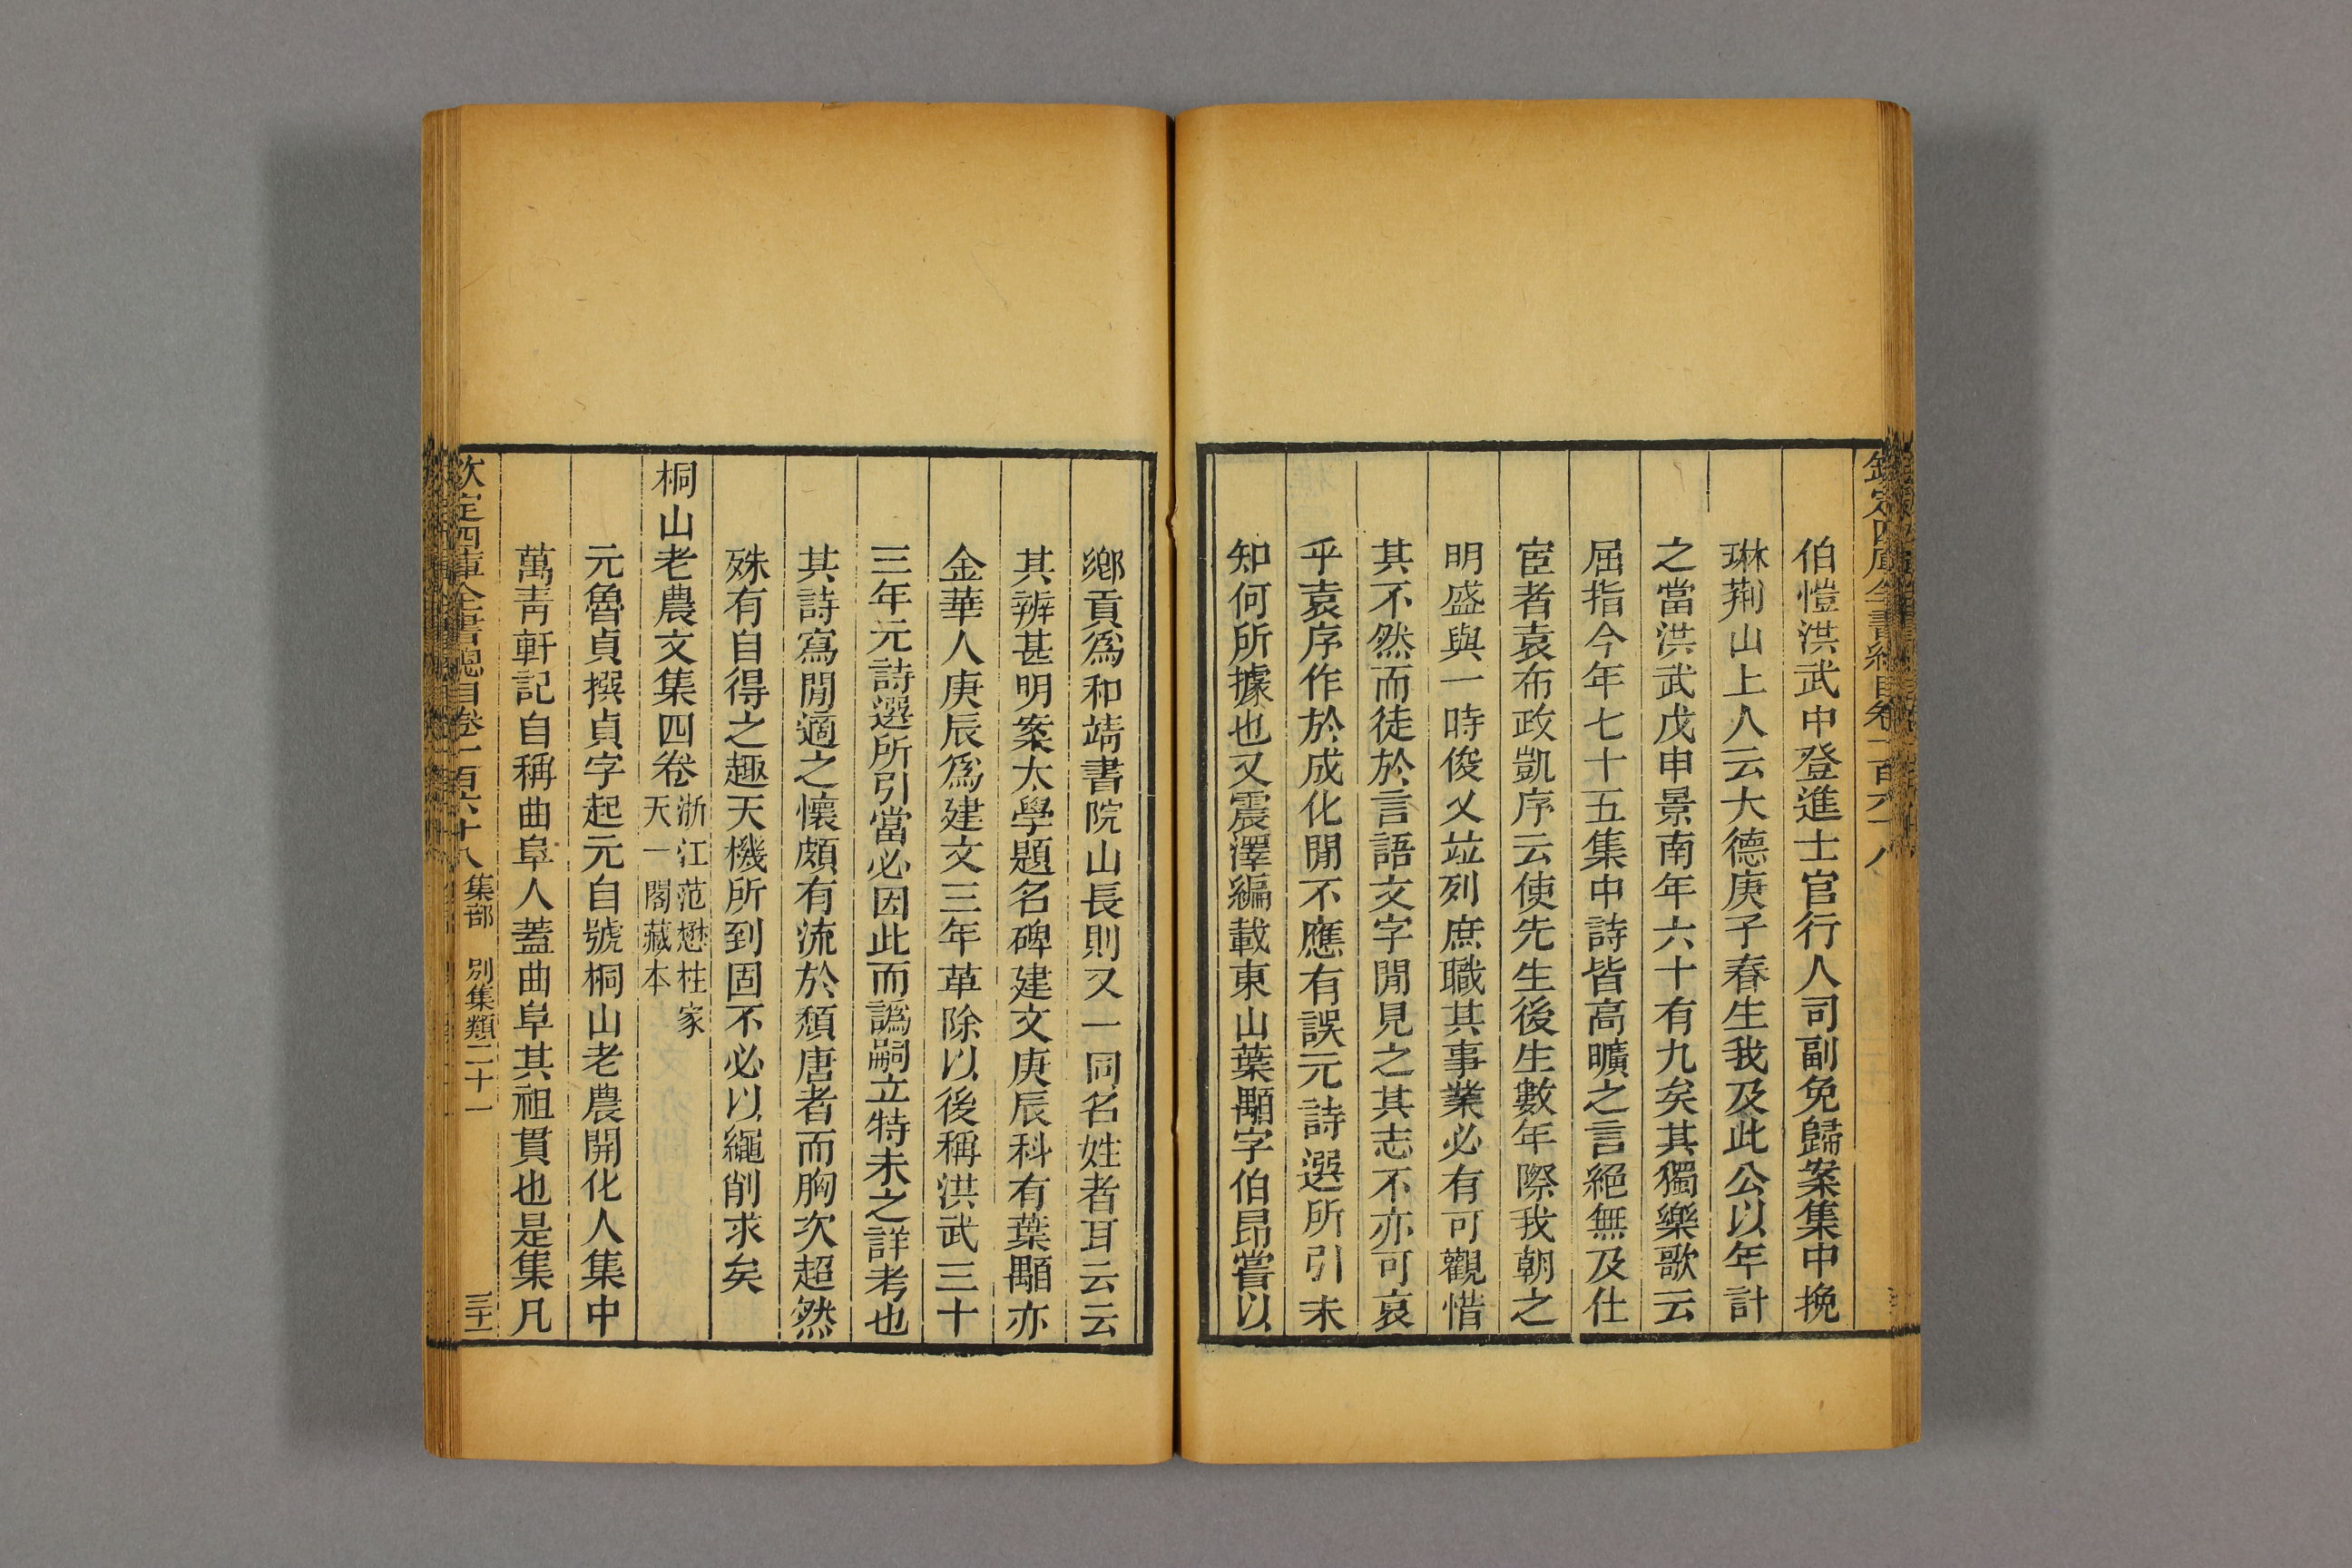 伯愷洪武中登進士官行人司副免歸案集中挽
琳荆山上人云大德庚子春生我及此公以年計
之當洪武戊申景南年六十有九矣其獨樂歌云
屈指今年七十五集中詩皆高曠之言絕無及仕
宦者袁布政凱序云使先生後生數年際我朝之
明盛與一時俊乂竝列庶職其事業必有可觀惜
其不然而徒於言語文字閒見之其志不亦可哀
乎袁序作於成化閒不應有誤元詩選所引未
知何所據也又震澤編載東山葉顒字伯昂嘗以
鄉貢爲和靖書院山長則又一同名姓者耳云云
其辨甚明案太學題名碑建文庚辰科有葉顒亦
金華人庚辰爲建文三年革除以後稱洪武三十
三年元詩選所引當必因此而譌嗣立特未之詳考也
其詩寫閒適之懷頗有流於頹唐者而胸次超然
殊有自得之趣天機所到固不必以繩削求矣
桐山老農文集四卷浙江范懋柱家
天一閣藏本
元魯貞撰貞字起元自號桐山老農開化人集中
萬靑軒記自稱曲阜人蓋曲阜其祖貫也是集凡
欽定四庫全書總目卷一百六十八 集部 別集類二十一 三十一